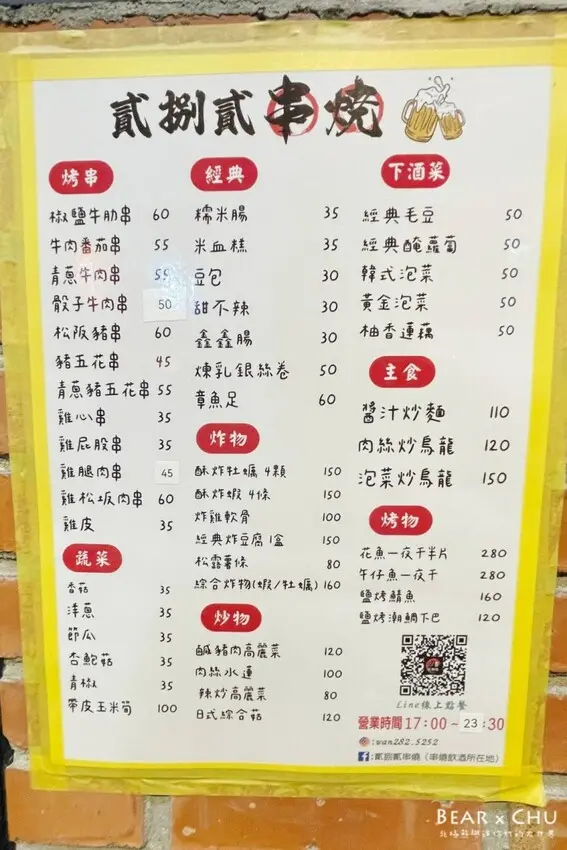 貳捌貳串燒
烤串
椒鹽牛肋串 60
牛肉番茄串 55
青蔥牛肉串 55
骰子牛肉串 50
松阪豬串 60
豬五花串 45
青蔥豬五花串 55
雞心串 35
雞屁股串 35
雞腿肉串 45
雞松坂肉串 60
雞皮 35
蔬菜
香菇 35
洋蔥 35
節瓜 35
杏鮑菇 35
青椒 35
帶皮玉米筍 100
經典
糯米腸 35
米血糕 35
豆包 30
甜不辣 30
鑫鑫腸 30
煉乳銀絲卷 50
章魚足 60
炸物
酥炸牡蠣 4顆 150
酥炸蝦 4條 150
炸雞軟骨 100
經典炸豆腐 1盒 150
松露薯條 80
綜合炸物(蝦/牡蠣) 160
炒物
鹹豬肉高麗菜 120
肉絲水蓮 100
辣炒高麗菜 80
日式綜合菇 120
下酒菜
經典毛豆 50
經典醃蘿蔔 50
韓式泡菜 50
黃金泡菜 50
柚香蓮藕 50
主食
醬汁炒麵 110
肉絲炒烏龍 120
泡菜炒烏龍 150
烤物
花魚一夜干半片 280
午仔魚一夜干 280
鹽烤鯖魚 160
鹽烤潮鯛下巴 120
Line線上點餐
營業時間17:00-23:30
:wan282.5252
:貳捌貳串燒（串燒飲酒所在地）
BEAR x CHU